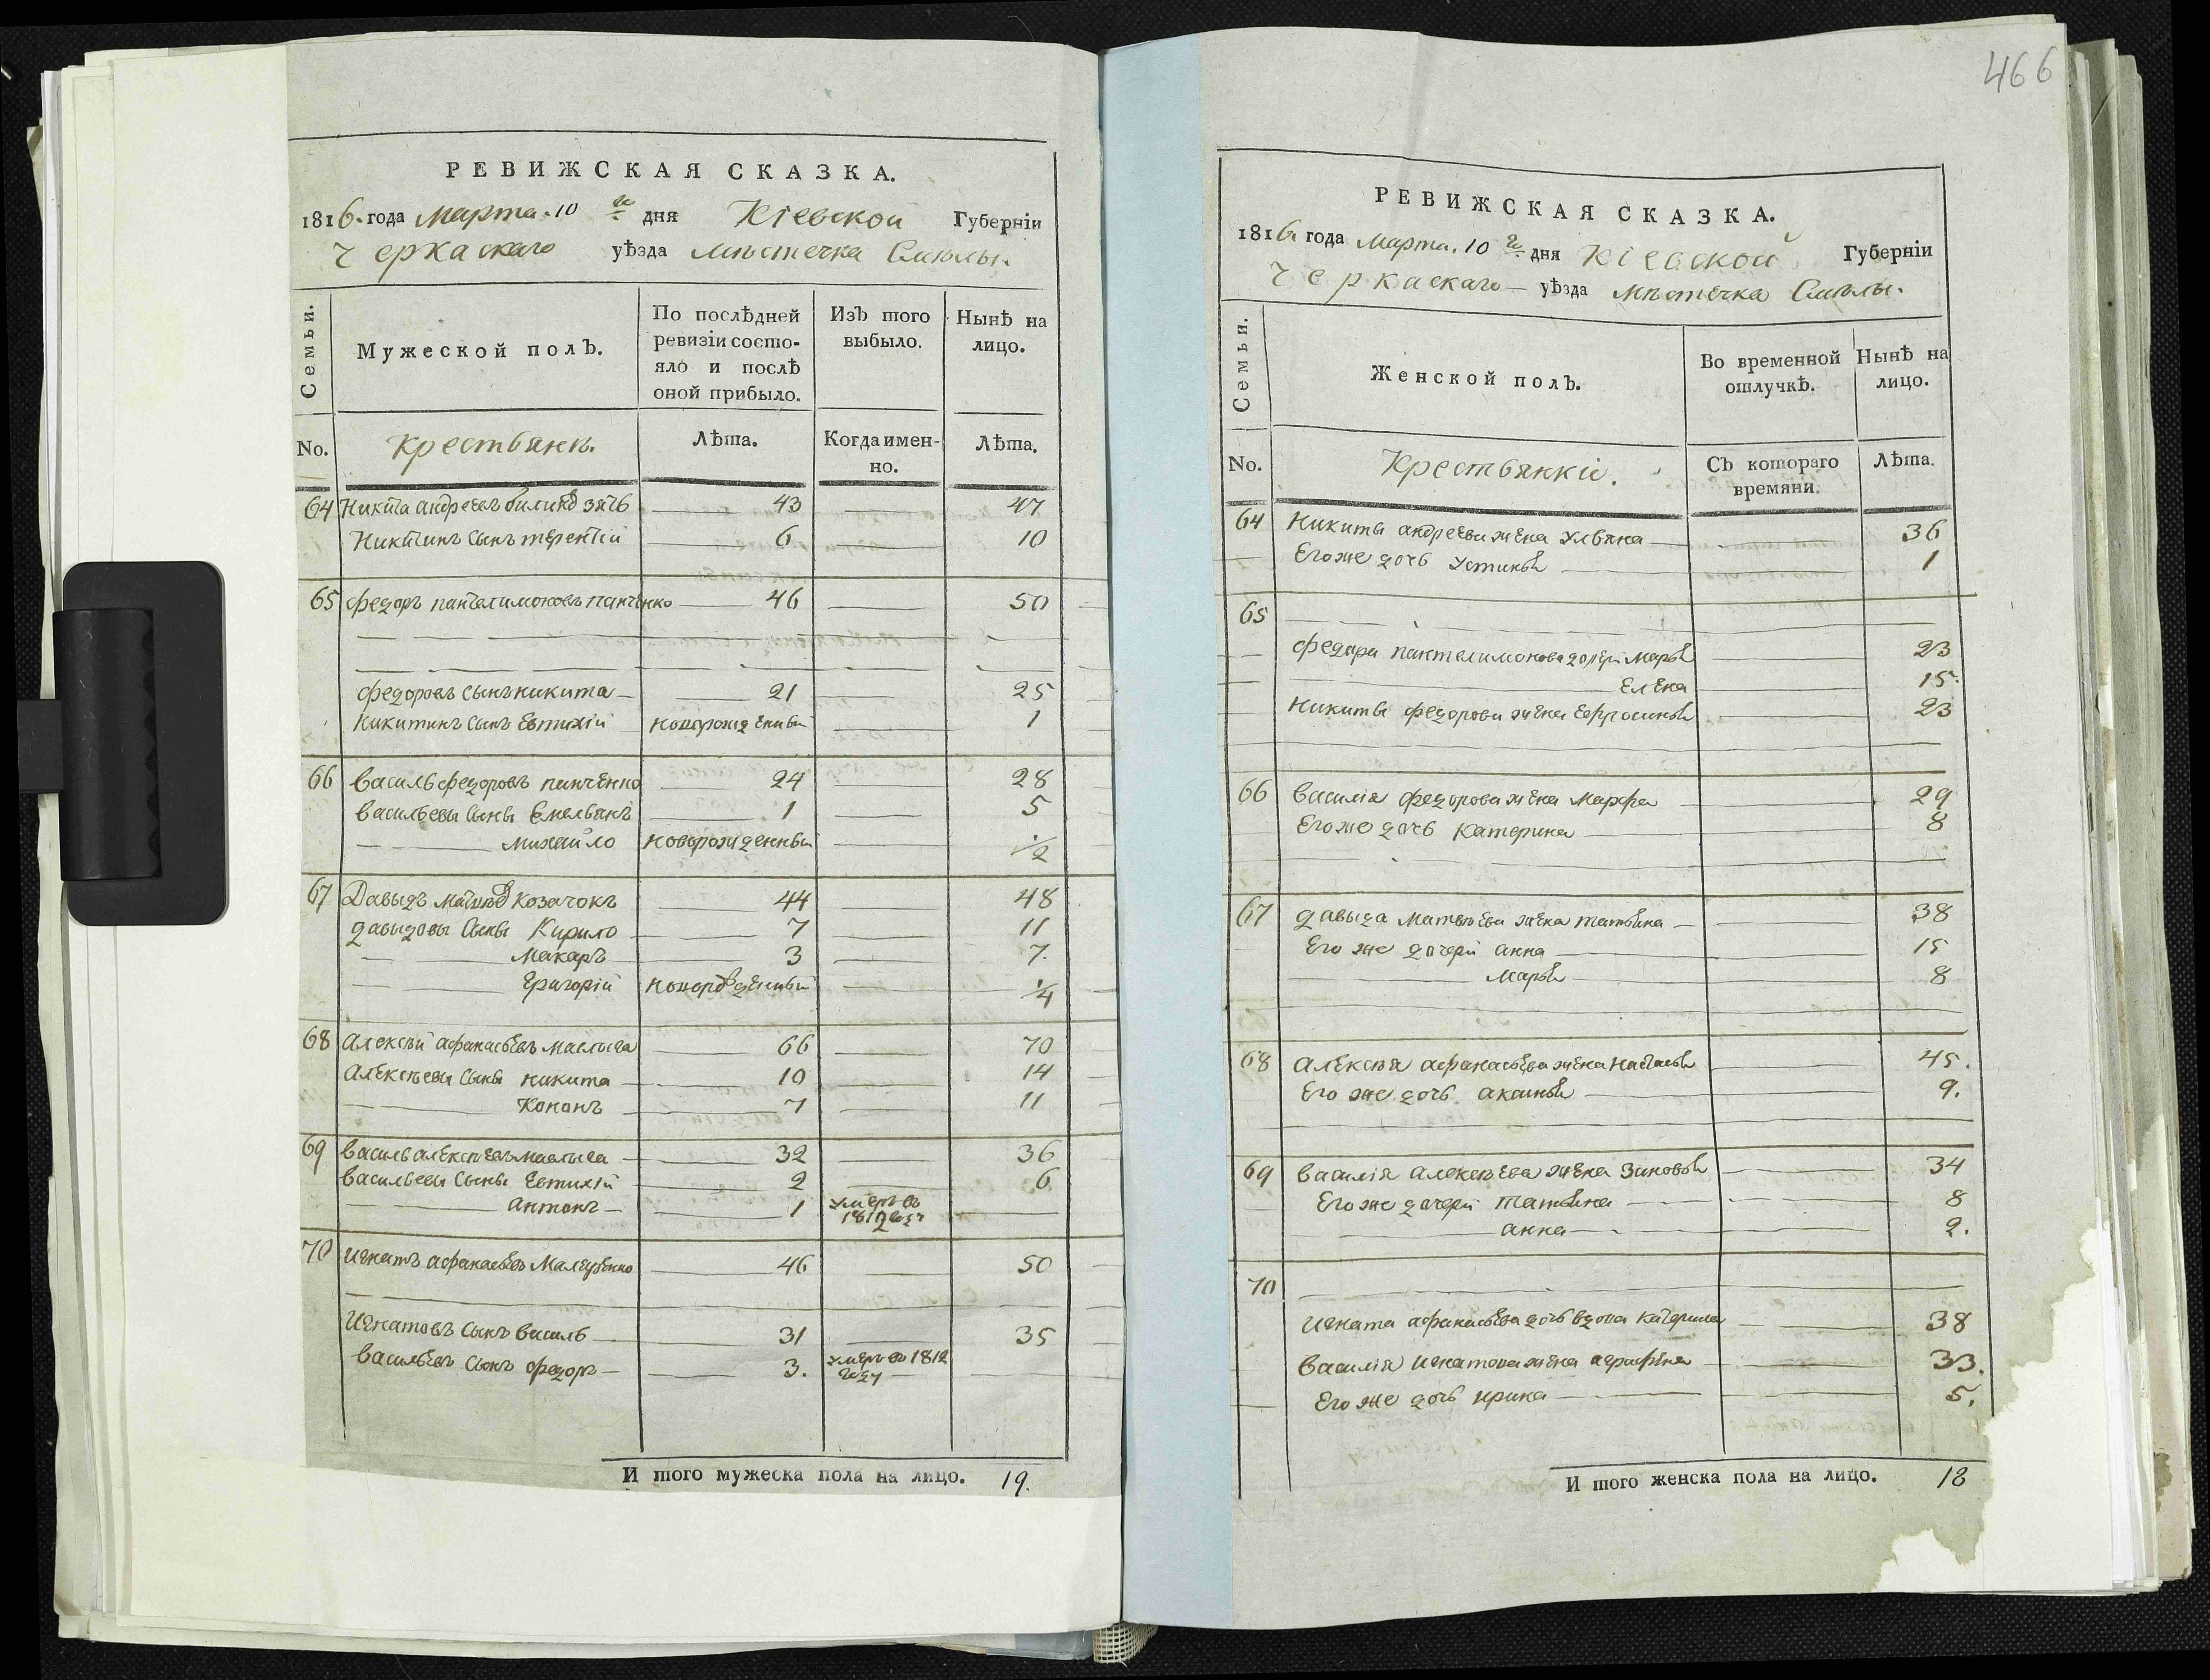 466
РЕВИЖСКАЯ СКАЗКА.
1816. года Марта. 10 го дня Кіевской Губерніи
Черкаскаго уѣзда мѣстечка Смѣлы.
Семьи.
Мужеской полЪ.
По послѣдней ревизіи состояло и послѣ оной прибыло.
ИзЪ того выбыло.
Нынѣ на лицо.
No.
Крестьянъ.
Лѣта.
Когда именно.
Лѣта.
64 Никита андреевъ зять 43 47
Никитинъ сынъ терентій 6 10
65 федоръ пантелимоновъ панченко 46 50
федоровъ сынъ никита 21 25
Никитинъ сынъ Евтихій новорожденный 1
66 василь федоровъ панченко 24 28
васильевы сыны Емельянъ 1 5
михайло новорожденный 1/2
67 Давыдъ матвѣевъ козачокъ 44 48
давыдовы сыны Кирило 7 11
Макаръ 3 7.
Григорій новорожденный 1/4
68 алексѣй афанасьевъ 66 70
алексѣевы сыны никита 10 14
Кононъ 7 11
69 василь алексѣевъ 32 36
васильевы сыны Евтихій 2 6
антонъ 1 умеръ въ 1812 году
70 игнатъ афанасьевъ 46 50
игнатовъ сынъ василь 31 35
васильевъ сынъ федоръ 3. умеръ въ 1812 году
И того мужеска пола на лицо. 19.
РЕВИЖСКАЯ СКАЗКА.
1816. года Марта. 10 го дня Кіевской Губерніи
Черкаскаго уѣзда мѣстечка Смѣлы.
Семьи.
Женской полЪ.
Во временной отлучкѣ.
Нынѣ на лицо.
No.
Крестьянкіи.
СЪ котораго времяни.
Лѣта.
64 никиты андреева жена ульяна 36
Его же дочь устинья 1
65
федора пантелимонова дочери марья 23
Елена 15.
никиты федорова жена Ефросинья 23
66 василія федорова жена марфа 29
Его же дочь катерина 8
67 давыда матвѣева жена татьяна 38
Его же дочери анна 15
марья 8
68 алексѣя афанасьева жена настасья 45.
Его же дочь аксинья 9.
69 василія алексѣева жена зиновья 34
Его же дочери татьяна 8
анна 2.
70
игната афанасьева дочь вдова катерина 38
василія игнатова жена аграфена 33.
Его же дочь ирина 5.
И того женска пола на лицо. 18